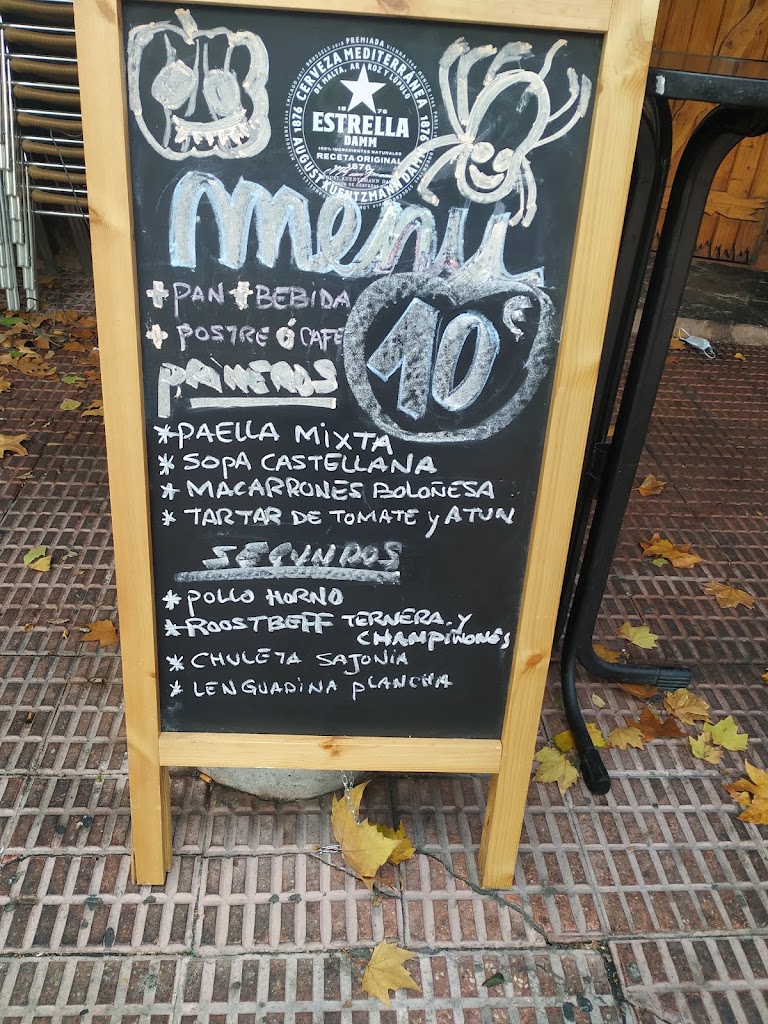 PREMIADA
CERVEZA MEDITERRÁNEA
DE MALTA, ARROZ Y LÚPULO
1876
1876
1876
ESTRELLA
DAMM
100% INGREDIENTES NATURALES
RECETA ORIGINAL
1876
AUGUST KUENTZMANN DAMM
menu
+ PAN + BEBIDA
+ POSTRE Ó CAFE
10€
PRIMEROS
* PAELLA MIXTA
* SOPA CASTELLANA
* MACARRONES BOLOÑESA
* TARTAR DE TOMATE y ATUN
SEGUNDOS
* POLLO HORNO
* ROOSTBEFF TERNERA Y
CHAMPIÑONES
* CHULETA SAJONIA
* LENGUADINA PLANCHA